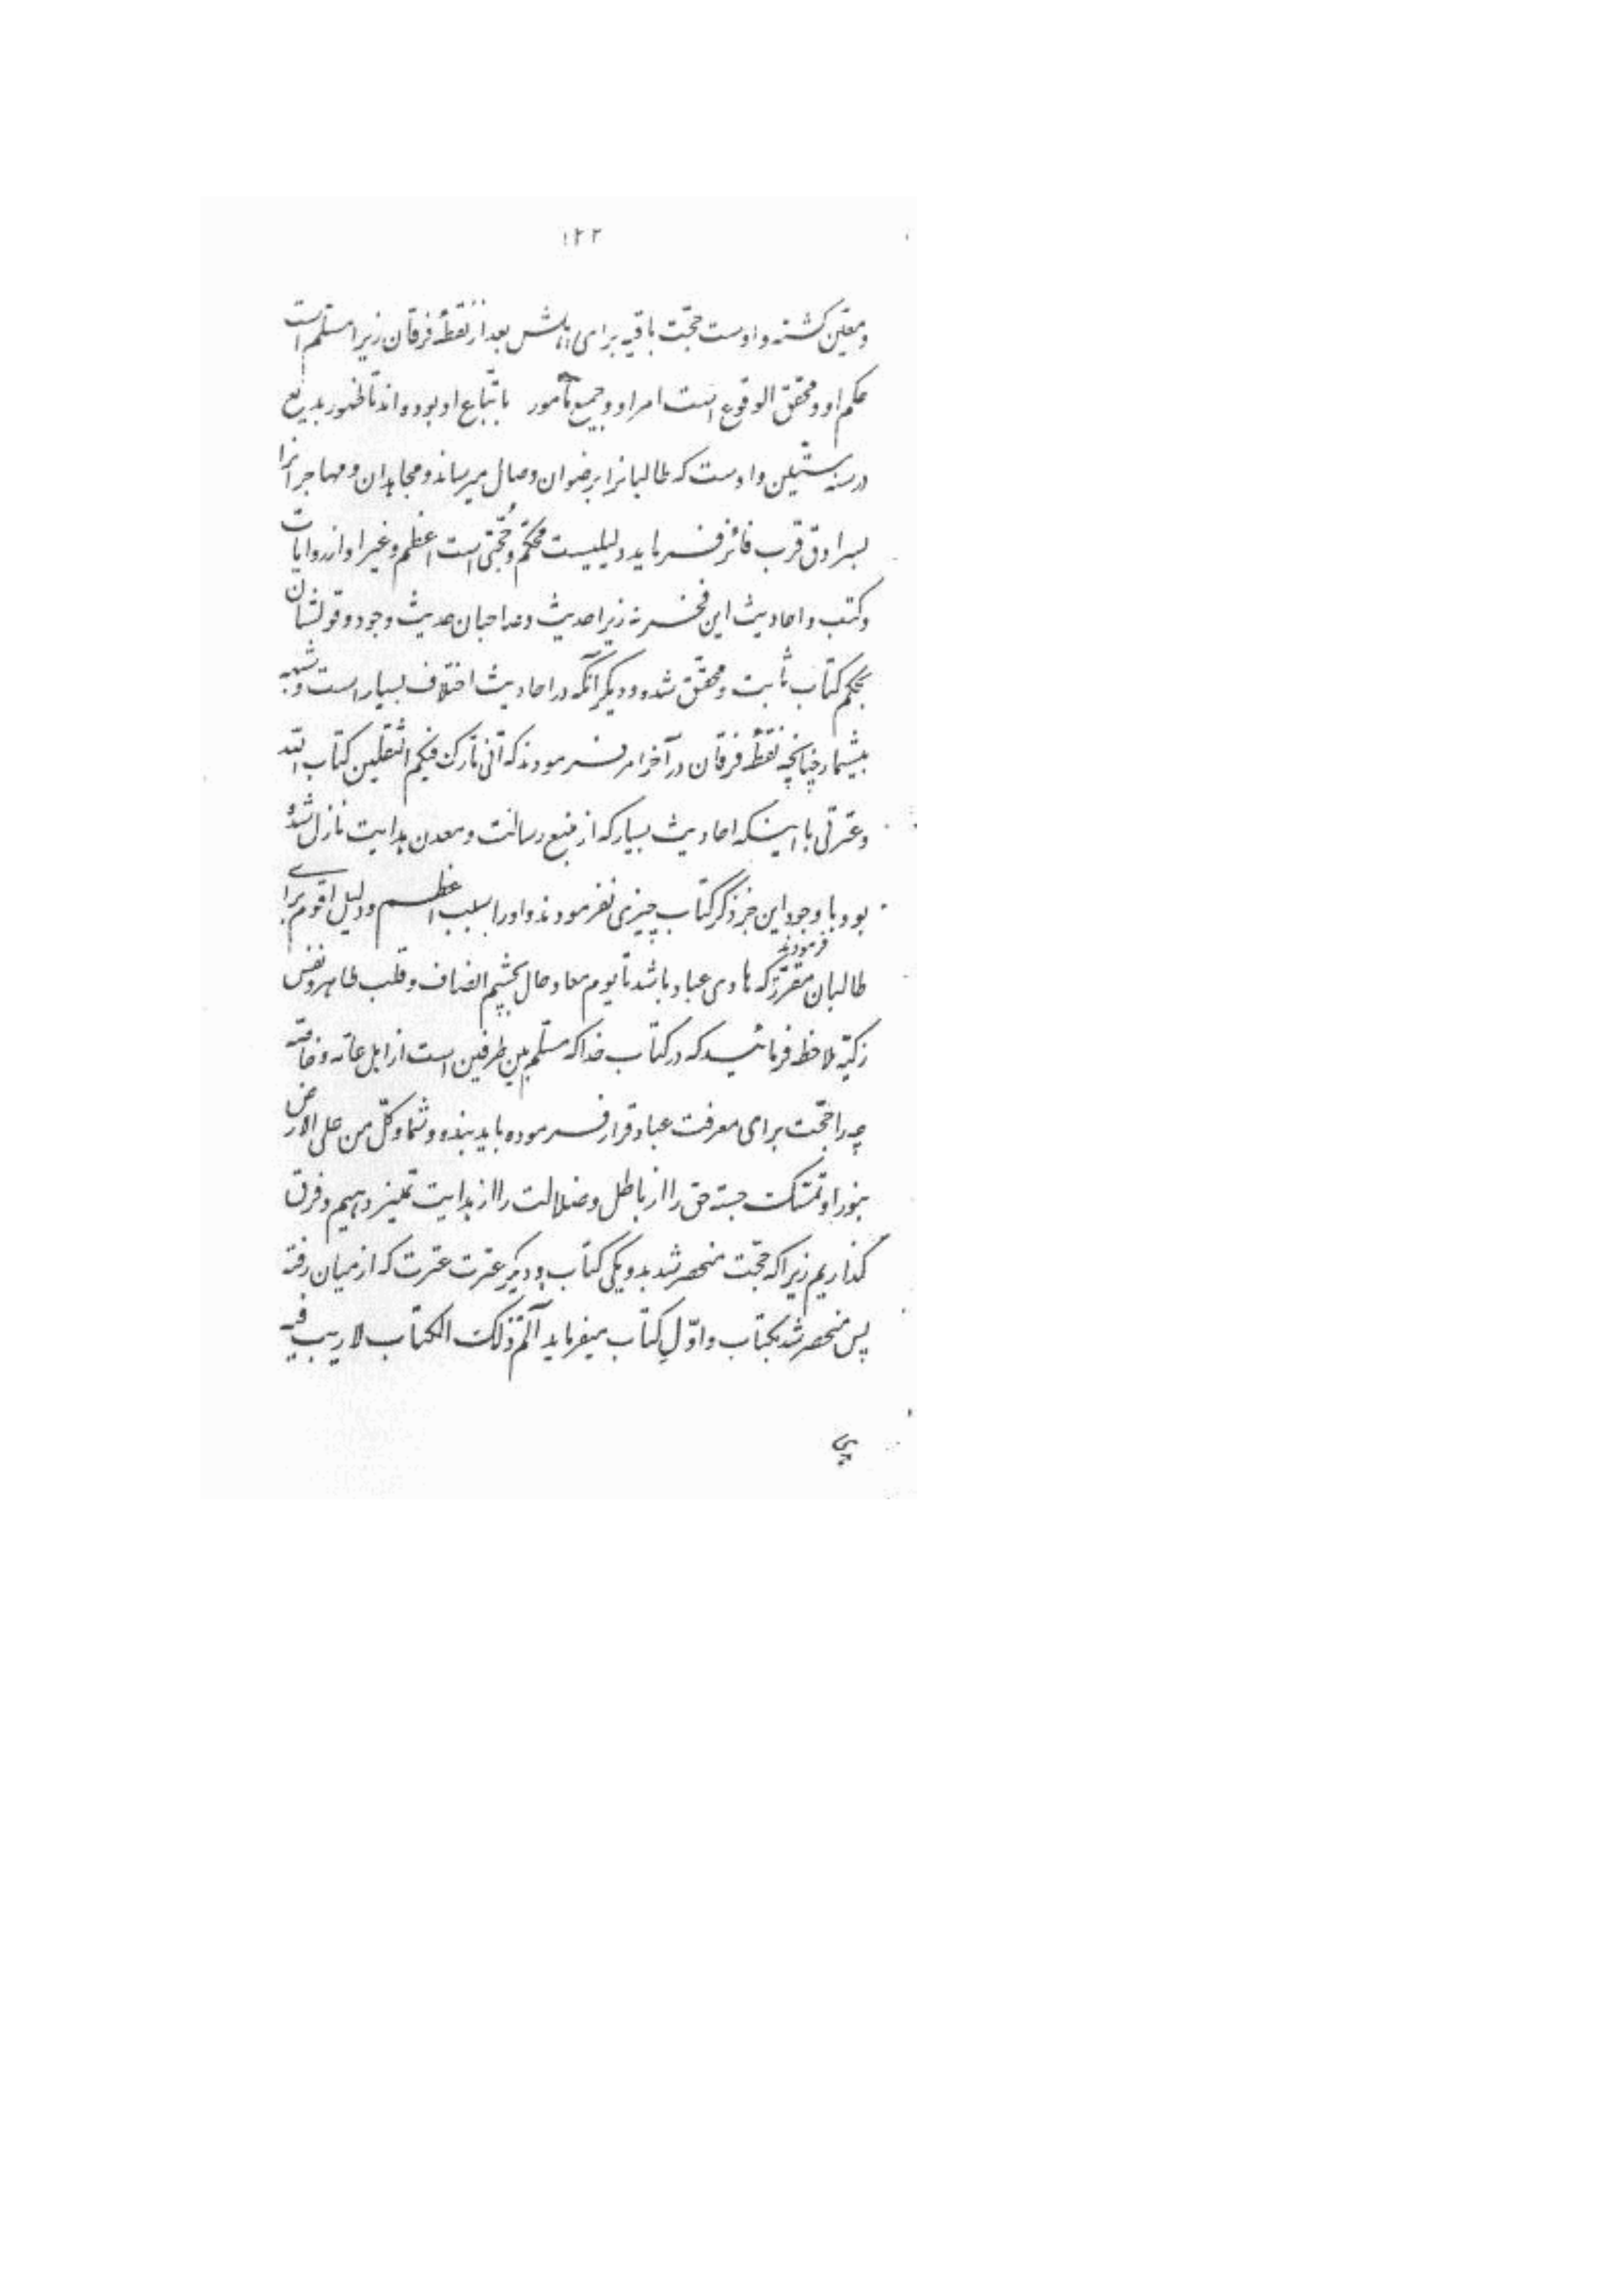 ١٣٣
ومعیّن کشته و اوست حجّت باقیه برای اهلش بعد از نقطهٔ فرقان زیرا مسلّم است
حکم او و محقّق الوقوع است امر او و جمیع مأمور باتّباع او بوده‌اند تا ظهور بدیع
در سنه ستّین و اوست که طالبانرا برضوان وصال میرساند و مجاهدان و مهاجرانرا
بسرادق قرب فائز فرماید دلیلیست محکم و حجّتی است اعظم و غیر او از روایات
و کتب و احادیث این فخر نه زیرا حدیث و صاحبان حدیث وجود و قولشان
بحکم کتاب ثابت و محقّق شده و دیگر آنکه در احادیث اختلاف بسیار است و شبهه
بیشمار چنانچه نقطهٔ فرقان در آخر امر فرمودند که انّی تارک فیکم الثقلین کتاب اللّه
و عترتی با اینکه احادیث بسیار که از منبع رسالت و معدن هدایت نازل شده
بود با وجود این جز ذکر کتاب چیزی نفرمودند و اورا سبب اعظم و دلیل اقوم برای
طالبان مقرّر فرمودند که هادی عباد باشد تا یوم معاد حال بچشم انصاف و قلب طاهر و نفس
زکیّه ملاحظه فرمائید که در کتاب خدا که مسلّم بین طرفین است از اهل عامّه و خاصّه
چه را حجّت برای معرفت عباد قرار فرموده باید بنده و شما و کلّ من علی الارض
بنور او تمسّک جسته حق را از باطل و ضلالت را از هدایت تمیز دهیم و فرق
گذاریم زیرا که حجّت منحصر شد بدو یکی کتاب و دیگر عترت عترت که از میان رفته
پس منحصر شد بکتاب و اوّل کتاب میفرماید آلم ذلک الکتاب لا ریب فیه